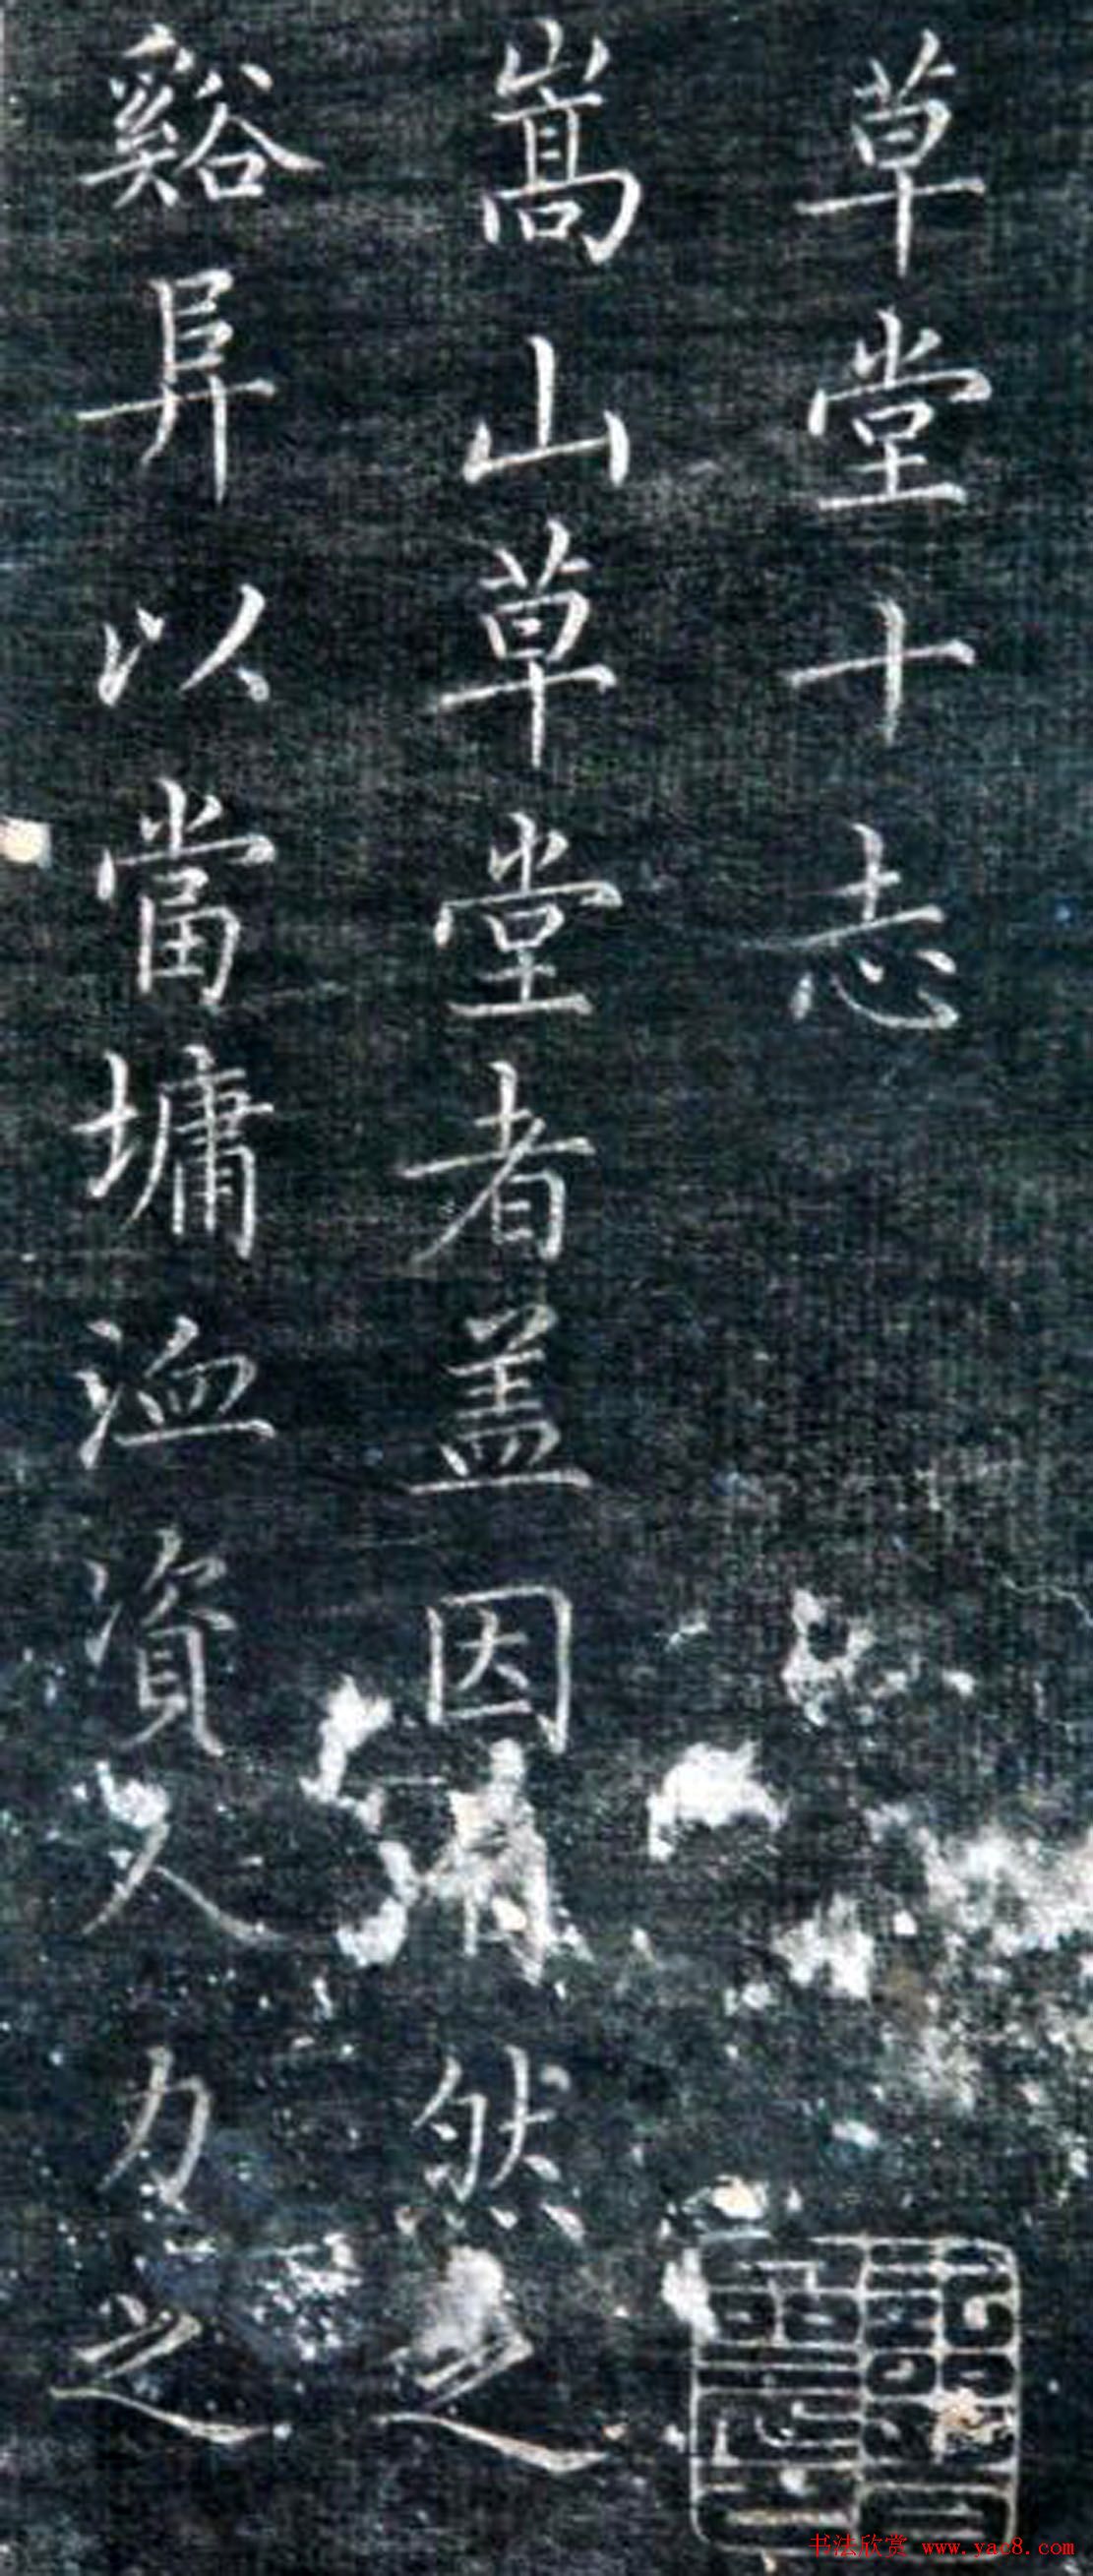 草堂十志
嵩山草堂者盖因 然之
谿阜以當墉洫資人力之
书法欣赏 www.yac8.com